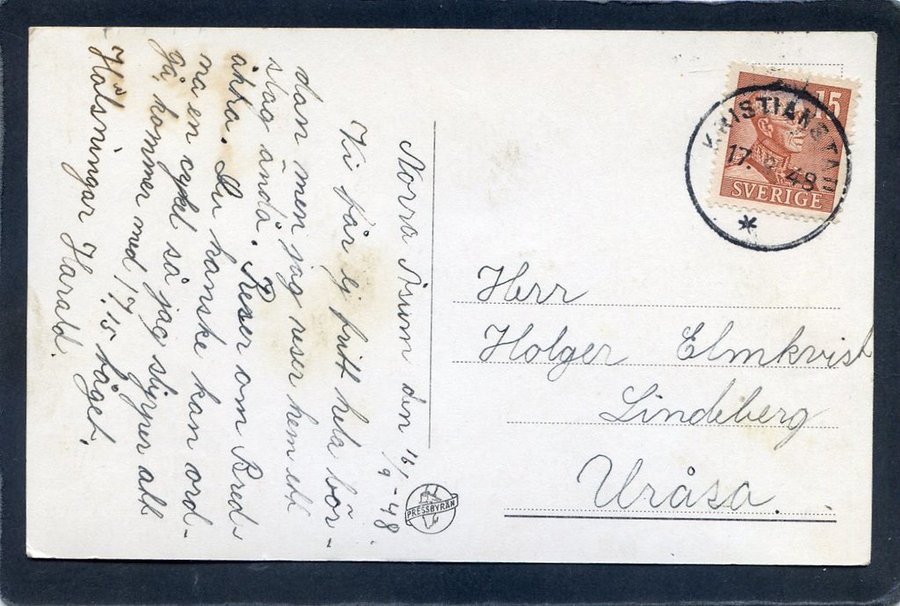 Norra Åsum den 16/9 -48.
Vi får ej fritt hela lör-
dan men jag reser hem ett
slag ändå. Reser om Bred-
åkra. Du kanske kan ord-
na en cykel så jag slipper att
gå, kommer med 17.15 tåget.
Hälsningar Harald.
PRESSBYRÅN
15
SVERIGE
KRISTIANSTAD
17. 48
Herr
Holger Elmkvist
Lindeberg
Uråsa.